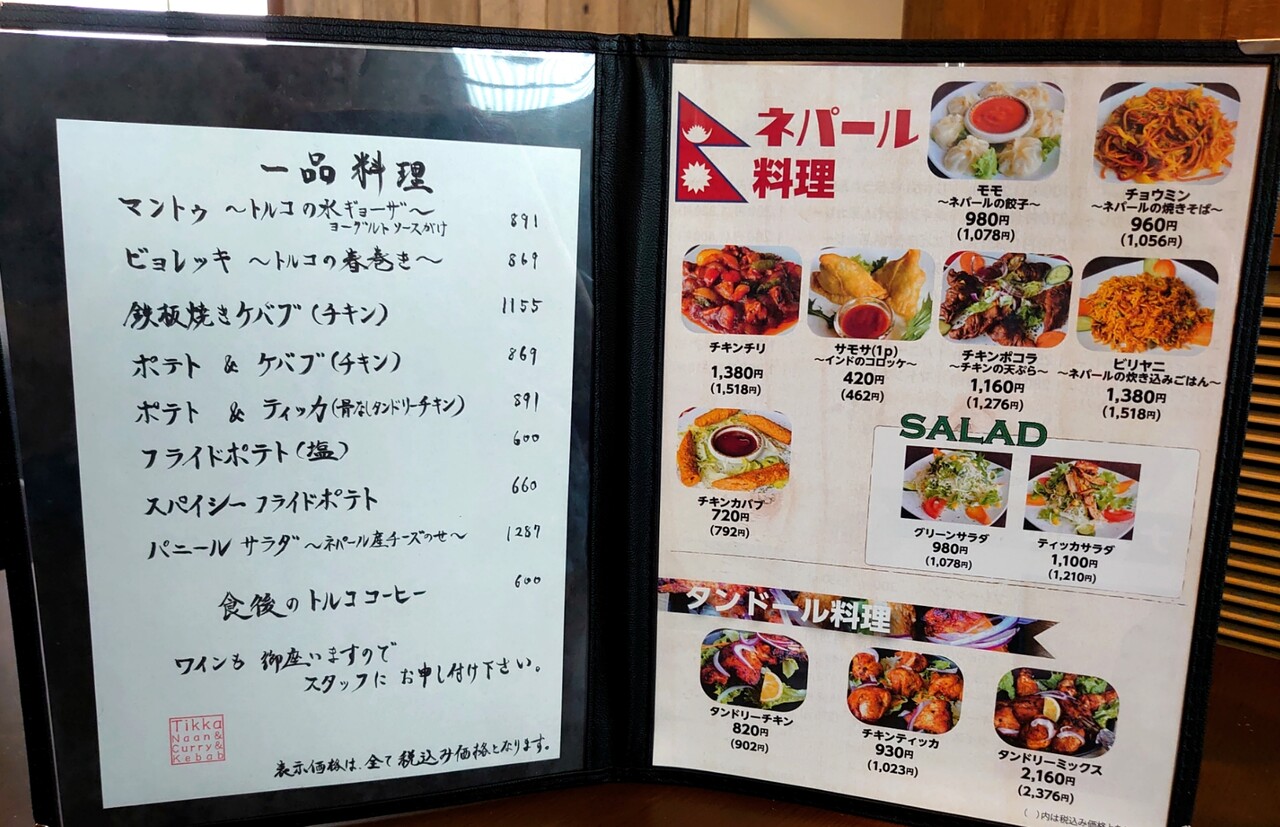 一品料理
マントゥ ～トルコの水ギョーザ～ 891
ヨーグルトソースがけ
ビョレッキ ～トルコの春巻き～ 869
鉄板焼きケバブ(チキン) 1155
ポテト & ケバブ(チキン) 869
ポテト & ティッカ(骨なしタンドリーチキン) 891
フライドポテト(塩) 600
スパイシーフライドポテト 660
パニール サラダ ～ネパール産チーズのせ～ 1287
食後のトルココーヒー 600
ワインも御座いますので
スタッフに お申し付け下さい。
Tikka
Naan&
Curry&
Kebab
表示価格は、全て税込み価格となります。
ネパール
料理
モモ
～ネパールの餃子～
980円
(1,078円)
チョウミン
～ネパールの焼きそば～
960円
(1,056円)
チキンチリ
1,380円
(1,518円)
サモサ(1p)
～インドのコロッケ～
420円
(462円)
チキンポコラ
～チキンの天ぷら～
1,160円
(1,276円)
ビリヤニ
～ネパールの炊き込みごはん～
1,380円
(1,518円)
チキンカバブ
720円
(792円)
SALAD
グリーンサラダ
980円
(1,078円)
ティッカサラダ
1,100円
(1,210円)
タンドール料理
タンドリーチキン
820円
(902円)
チキンティッカ
930円
(1,023円)
タンドリーミックス
2,160円
(2,376円)
( )内は税込み価格と